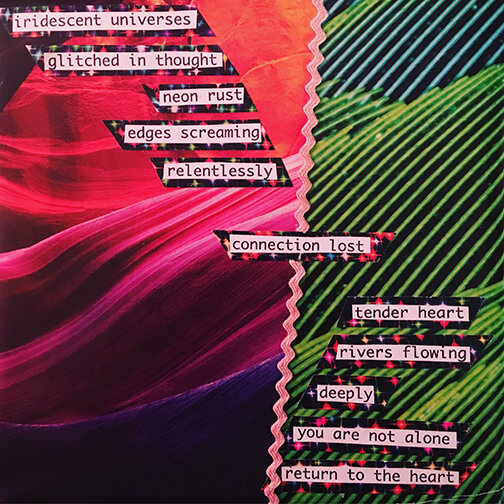 iridescent universes
glitched in thought
neon rust
edges screaming
relentlessly
connection lost
tender heart
rivers flowing
deeply
you are not alone
return to the heart